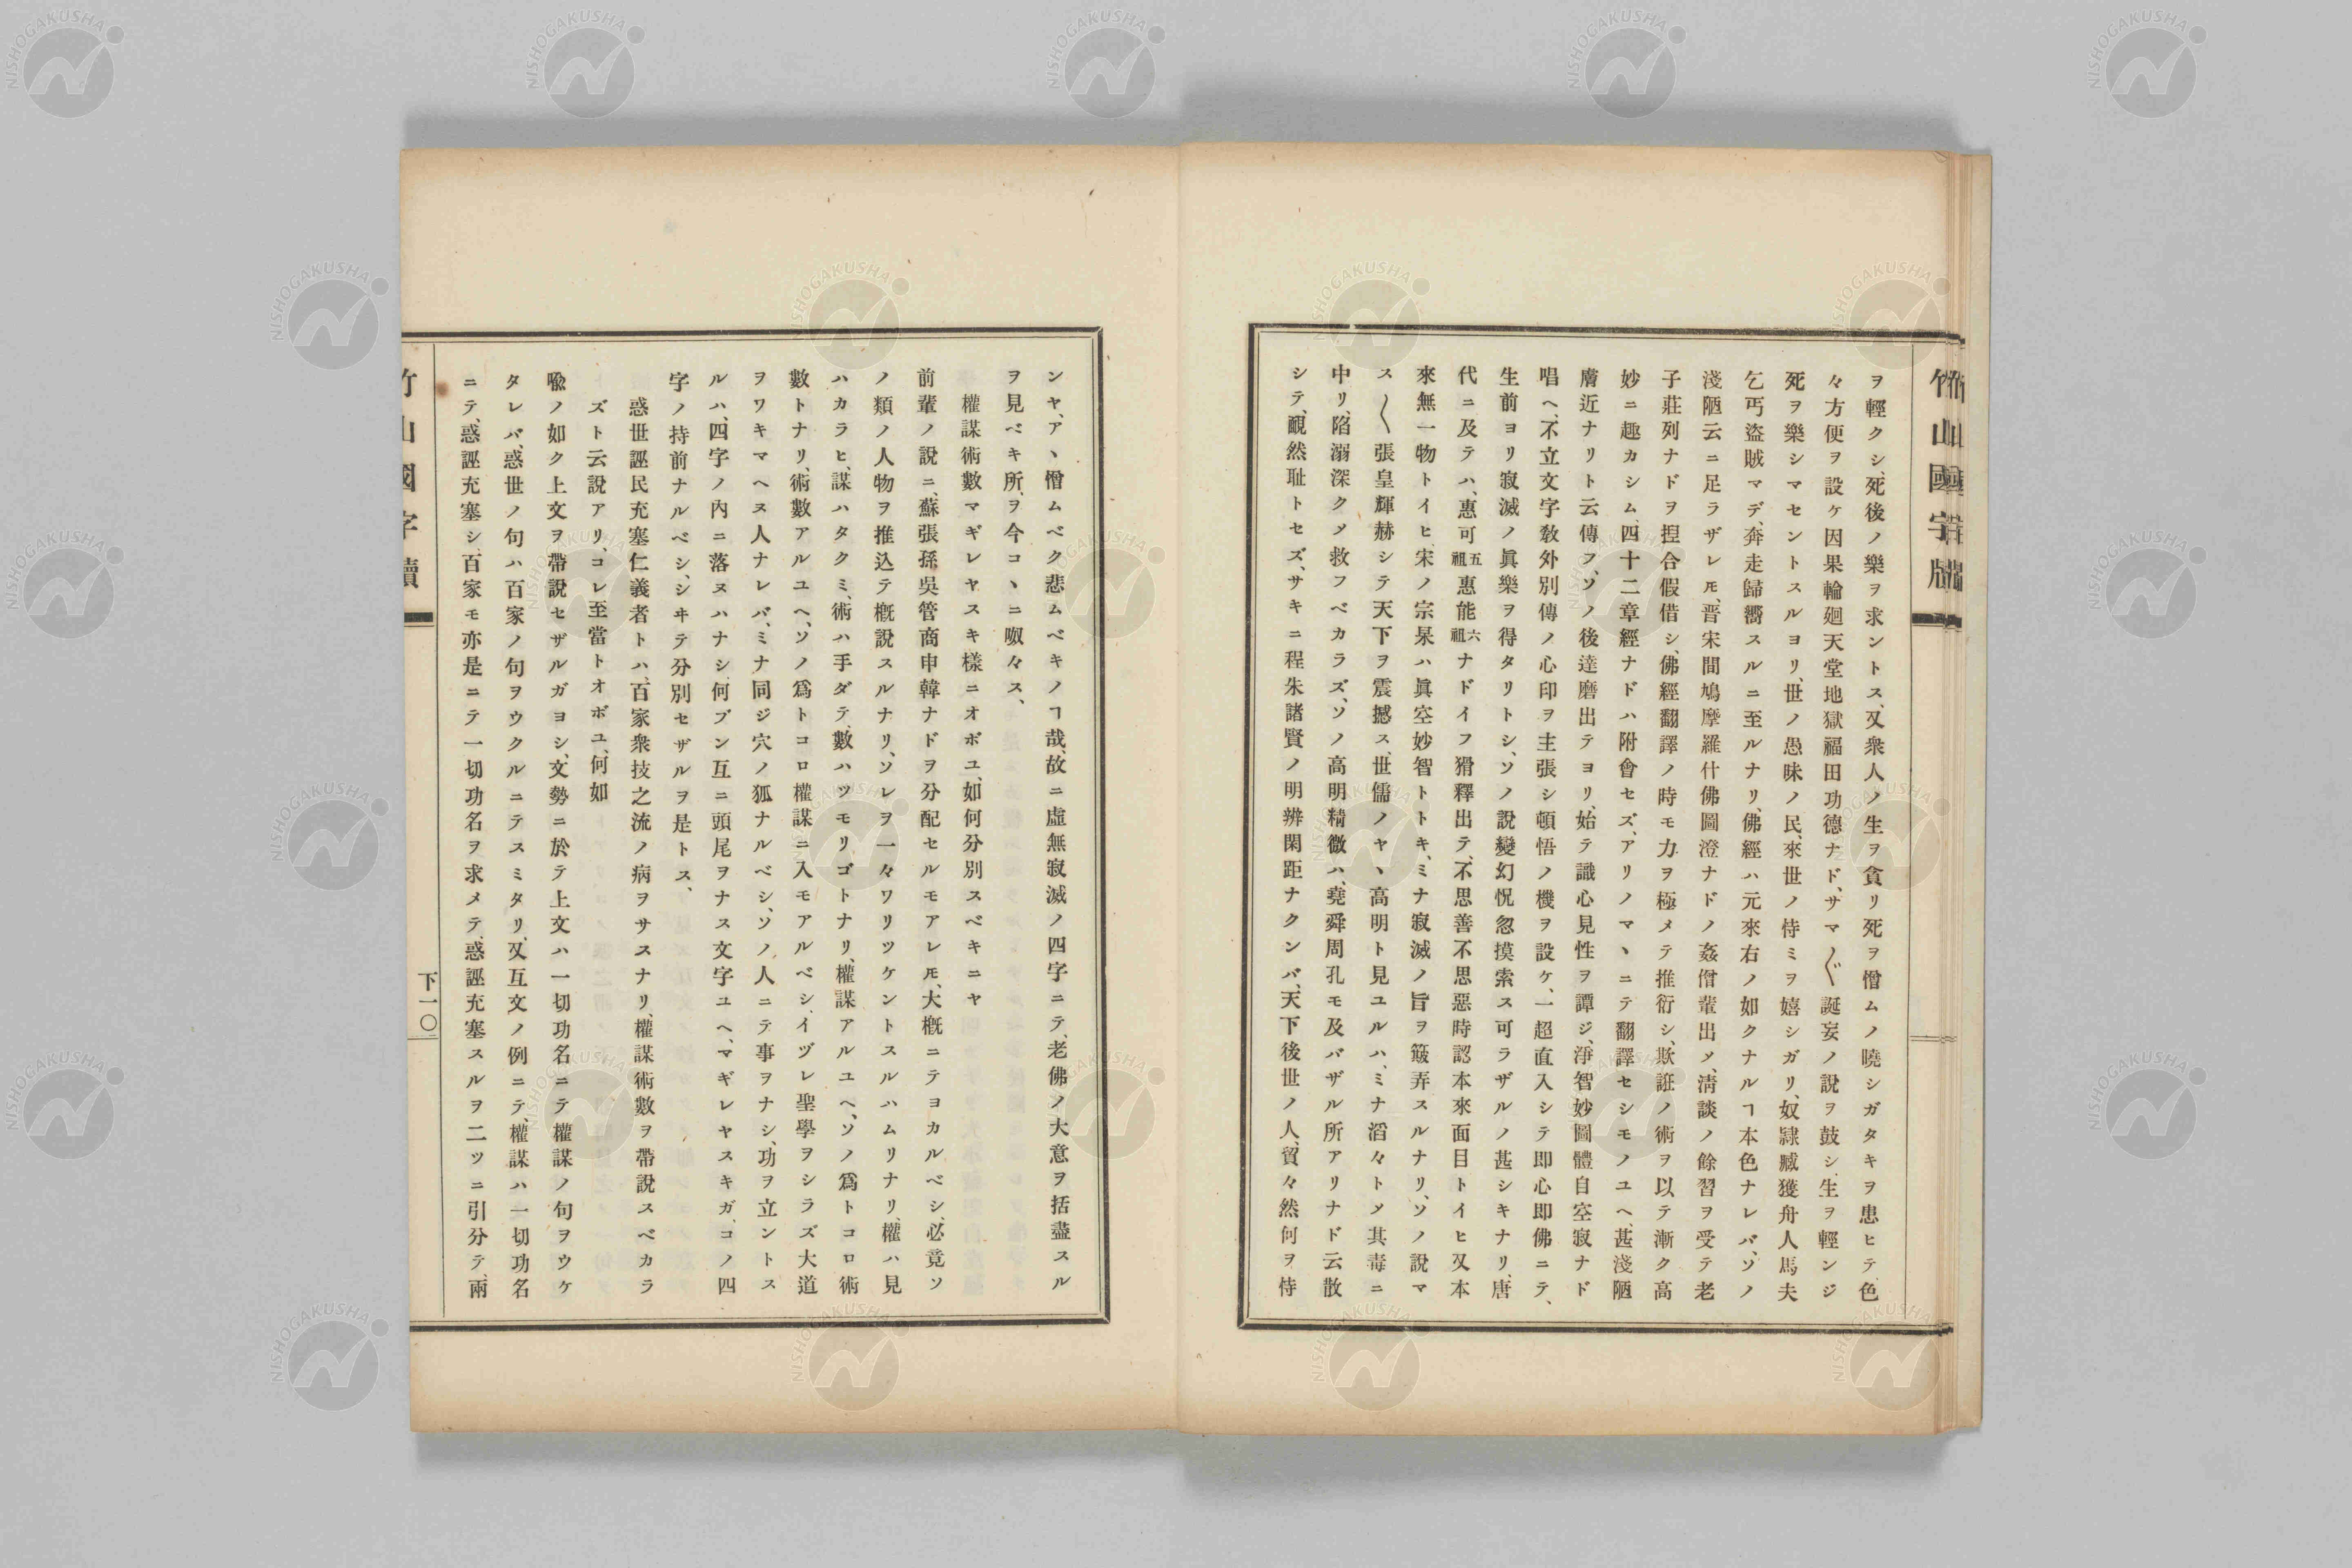 ヲ輕クシ、死後ノ樂ヲ求ントス、又衆人ノ生ヲ貪リ死ヲ憎ムノ曉シガタキヲ患ヒテ、色
々方便ヲ設ケ因果輪廻天堂地獄福田功德ナド、サマ〴〵誕妄ノ說ヲ鼓シ、生ヲ輕ンジ
死ヲ樂シマセントスルヨリ、世ノ愚昧ノ民、來世ノ恃ミヲ嬉シガリ、奴隷臧獲舟人馬夫
乞丐盜賊マデ、奔走歸嚮スルニ至ルナリ、佛經ハ元來右ノ如クナルヿ本色ナレバ、ソノ
淺陋云ニ足ラザレ𪜈、晋宋間鳩摩羅什佛圖澄ナドノ姦僧輩出〆、淸談ノ餘習ヲ受テ老
子莊列ナドヲ揑合假借シ、佛經翻譯ノ時モ力ヲ極メテ推衍シ、欺誑ノ術ヲ以テ漸ク高
妙ニ趣カシム、四十二章經ナドハ附會セズ、アリノマヽニテ翻譯セシモノユヘ、甚淺陋
膚近ナリト云傳フ、ソノ後達磨出テヨリ、始テ識心見性ヲ譚ジ、淨智妙圓體自空寂ナド
唱ヘ、不立文字敎外別傳ノ心印ヲ主張シ頓悟ノ機ヲ設ケ、一超直入シテ卽心卽佛ニテ、
生前ヨリ寂滅ノ眞樂ヲ得タリトシ、ソノ說變幻怳忽摸索ス可ラザルノ甚シキナリ、唐
代ニ及テハ、惠可五祖惠能六祖ナドイフ猾釋出テ、不思善不思惡時認本來面目トイヒ又本
來無一物トイヒ、宋ノ宗杲ハ眞空妙智トトキ、ミナ寂滅ノ旨ヲ簸弄スルナリ、ソノ說マ
ス〳〵張皇輝赫シテ天下ヲ震撼ス、世儒ノヤヽ高明ト見ユルハ、ミナ滔々ト〆其毒ニ
中リ、陷溺深ク〆救フベカラズ、ソノ高明精微ハ、堯舜周孔モ及バザル所アリナド云散
シテ、靦然耻トセズ、サキニ程朱諸賢ノ明辨閑距ナクンバ、天下後世ノ人、貿々然何ヲ恃
ンヤ、アヽ憎ムベク悲ムベキノヿ哉、故ニ虛無寂滅ノ四字ニテ、老佛ノ大意ヲ括盡スル
ヲ見ベキ所、ヲ今コヽニ呶々ス、
權謀術數マギレヤスキ樣ニオボユ、如何分別スベキニヤ
前輩ノ說ニ、蘇張孫吳管商申韓ナドヲ分配セルモアレ𪜈、大槪ニテヨカルベシ、必竟ソ
ノ類ノ人物ヲ推込テ槪說スルナリ、ソレヲ一々ワリツケントスルハムリナリ、權ハ見
ハカラヒ、謀ハタクミ、術ハ手ダテ、數ハツモリゴトナリ、權謀アルユヘ、ソノ爲トコロ術
數トナリ、術數アルユヘ、ソノ爲トコロ權謀ニ入モアルベシ、イヅレ聖學ヲシラズ大道
ヲワキマヘヌ人ナレバ、ミナ同ジ穴ノ狐ナルベシ、ソノ人ニテ事ヲナシ、功ヲ立ントス
ルハ、四字ノ內ニ落ヌハナシ、何ブン互ニ頭尾ヲナス文字ユヘ、マギレヤスキガ、コノ四
字ノ持前ナルベシ、シヰテ分別セザルヲ是トス、
惑世誣民充塞仁義者トハ、百家衆技之流ノ病ヲサスナリ、權謀術數ヲ帶說スベカラ
ズト云說アリ、コレ至當トオボユ、何如
喩ノ如ク上文ヲ帶說セザルガヨシ、文勢ニ於テ上文ハ一切功名ニテ權謀ノ句ヲウケ
タレバ、惑世ノ句ハ百家ノ句ヲウクルニテスミタリ、又互文ノ例ニテ、權謀ハ一切功名
ニテ、惑誣充塞シ、百家モ亦是ニテ一切功名ヲ求メテ、惑誣充塞スルヲ二ツニ引分テ、兩
竹山國字牘
下一〇